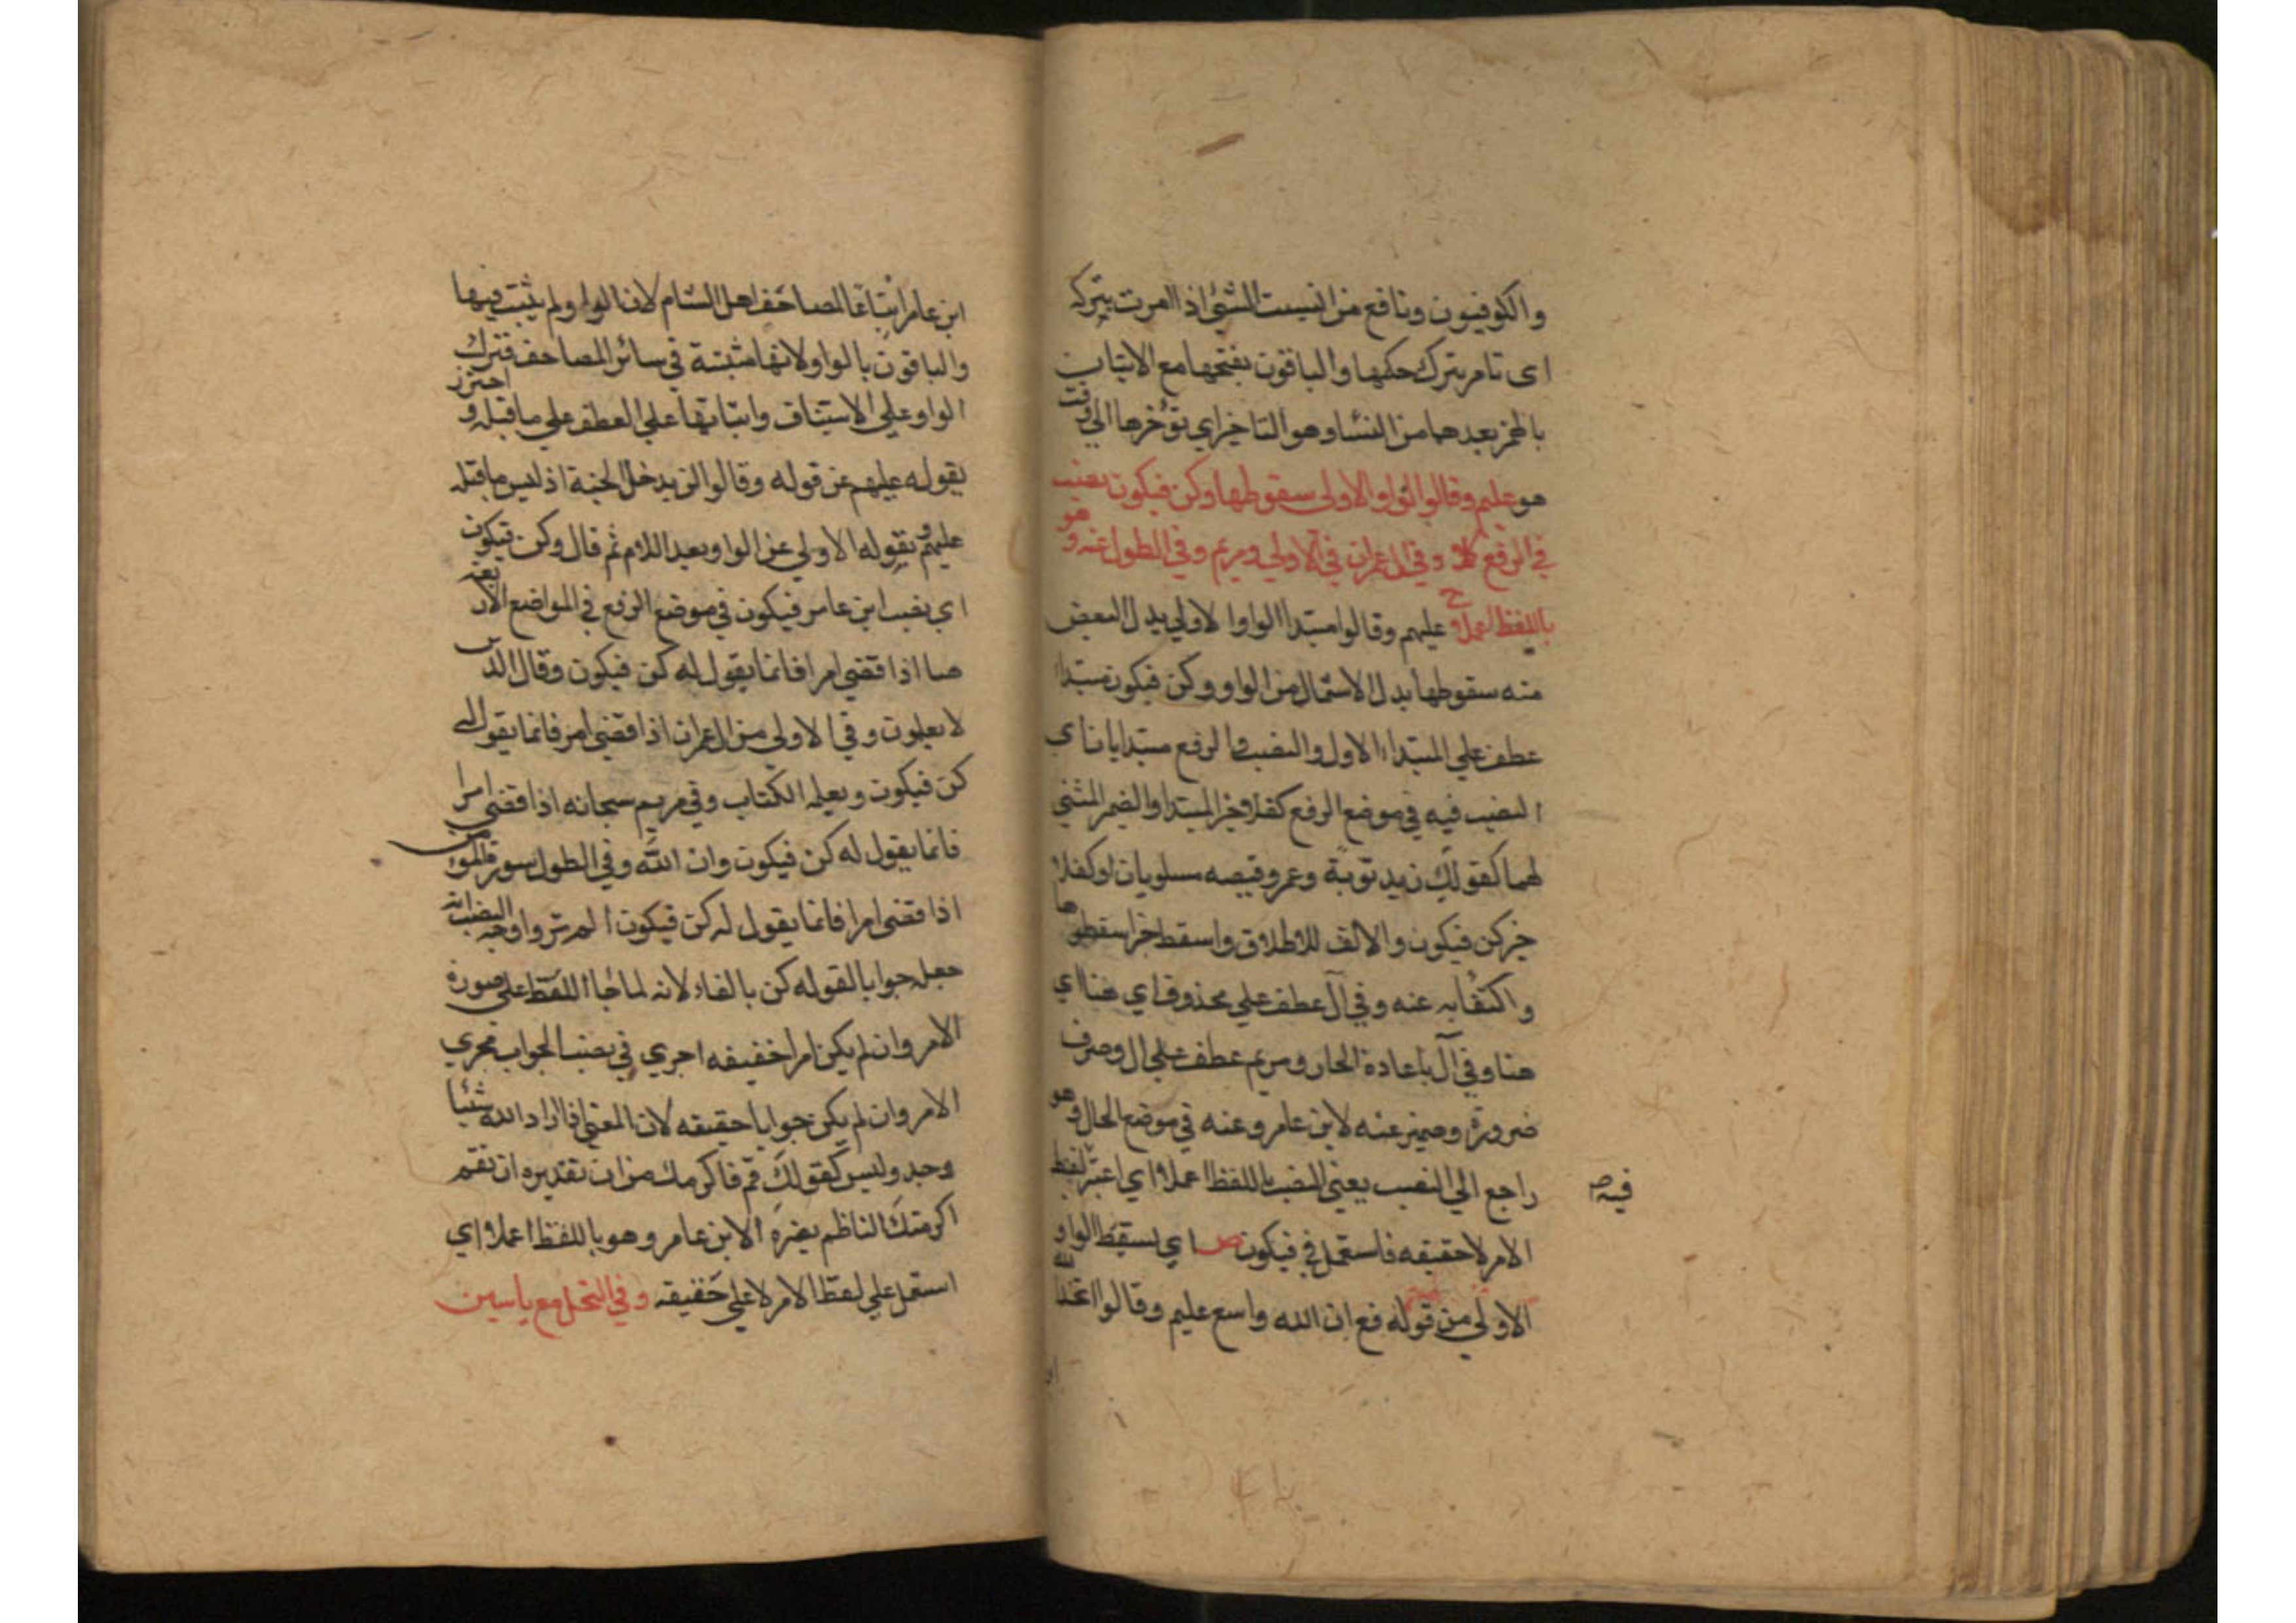 والكوفيون ونافع من انسيت الشئ اذا امرت بتركه
اى تامر بترك حكمها والباقون بفتحها مع الاتيان
بالهمز بعدهما من النسا وهو التاخير اي نؤخرها الي وقت
هو عليم وقالوا الواو الاولى سقوطها وكن فيكون النصب
في الرفع كفلا وفي ال عمران في الاولى ومريم وفي الطول عنه وهو
باللفظ اعملا ح عليهم وقالوا مبتدا الواو الاولي بدل البعض
منه سقوطها بدل الاشتمال من الواو وكن فيكون مبتدا
عطف علي المبتداء الاول والنصب في الرفع مبتدا يا ناى
النصب فيه في موضع الرفع كفلا وخبر المبتدا والضمير المثنى
لهما كقولك زيد ثوبه وعمرو قميصه مسلوبان او كفلا
خبر كن فيكون والالف للاطلاق واسقط خبر سقوطها
واكتفا به عنه وفي آل عطف علي محذوف اي هنا اي
هنا وفي آل باعادة الجار ومريم عطف علي ال وصرف
ضرورة وضمير عنه لابن عامر وعنه في موضع الحال وهو
راجع الي النصب يعني النصب باللفظ اعملا اي اعتبر لفظ
فيه صح
الامر لا حقيقه فاستعمل في فيكون ص اي يسقط الواو
الاولي من قوله فع ان الله واسع عليم وقالوا اتخذ الله
ابن
ابن عامر اتباعا لمصاحف اهل الشام لان الواو لم يثبت فيها
والباقون بالواو لانها مثبتة في سائر المصاحف فترك
الواو علي الاستيناف واثباتها علي العطف علي ما قبله واحترز
بقوله عليهم عن قوله وقالوا لن يدخل الجنة اذ ليس ما قبله
عليهم وبقوله الاولي عن الواو بعد اللام ثم قال وكن فيكون
اي نصب ابن عامر فيكون في موضع الرفع في المواضع الاربعة
هنا اذا قضي امرا فانما يقول له كن فيكون وقال الذين
لا يعلمون وفي الاولي من ال عمران اذا قضي امر فانما يقول له
كن فيكون ويعلمه الكتاب وفي مريم سبحانه اذا قضي امرا
فانما يقول له كن فيكون وان الله وفي الطول سورة المؤمن
اذا قضي امرا فانما يقول له كن فيكون الم تر واوجه النصب انه
جعله جوابا لقوله كن بالفاء لانه لما جاء اللفظ علي صورة
الامر وان لم يكن امرا حقيقه اجري في نصب الجواب مجري
الامر وان لم يكن جوابا حقيقه لان المعني اذا اراد الله شئيا
وجد وليس كقولك قم فاكرمك من ان تقديره ان تقم
اكرمتك الناظم بضره الابن عامر وهو باللفظ اعملا اي
استعمل علي لفظ الامر لا علي حقيقه وفي النحل مع ياسين